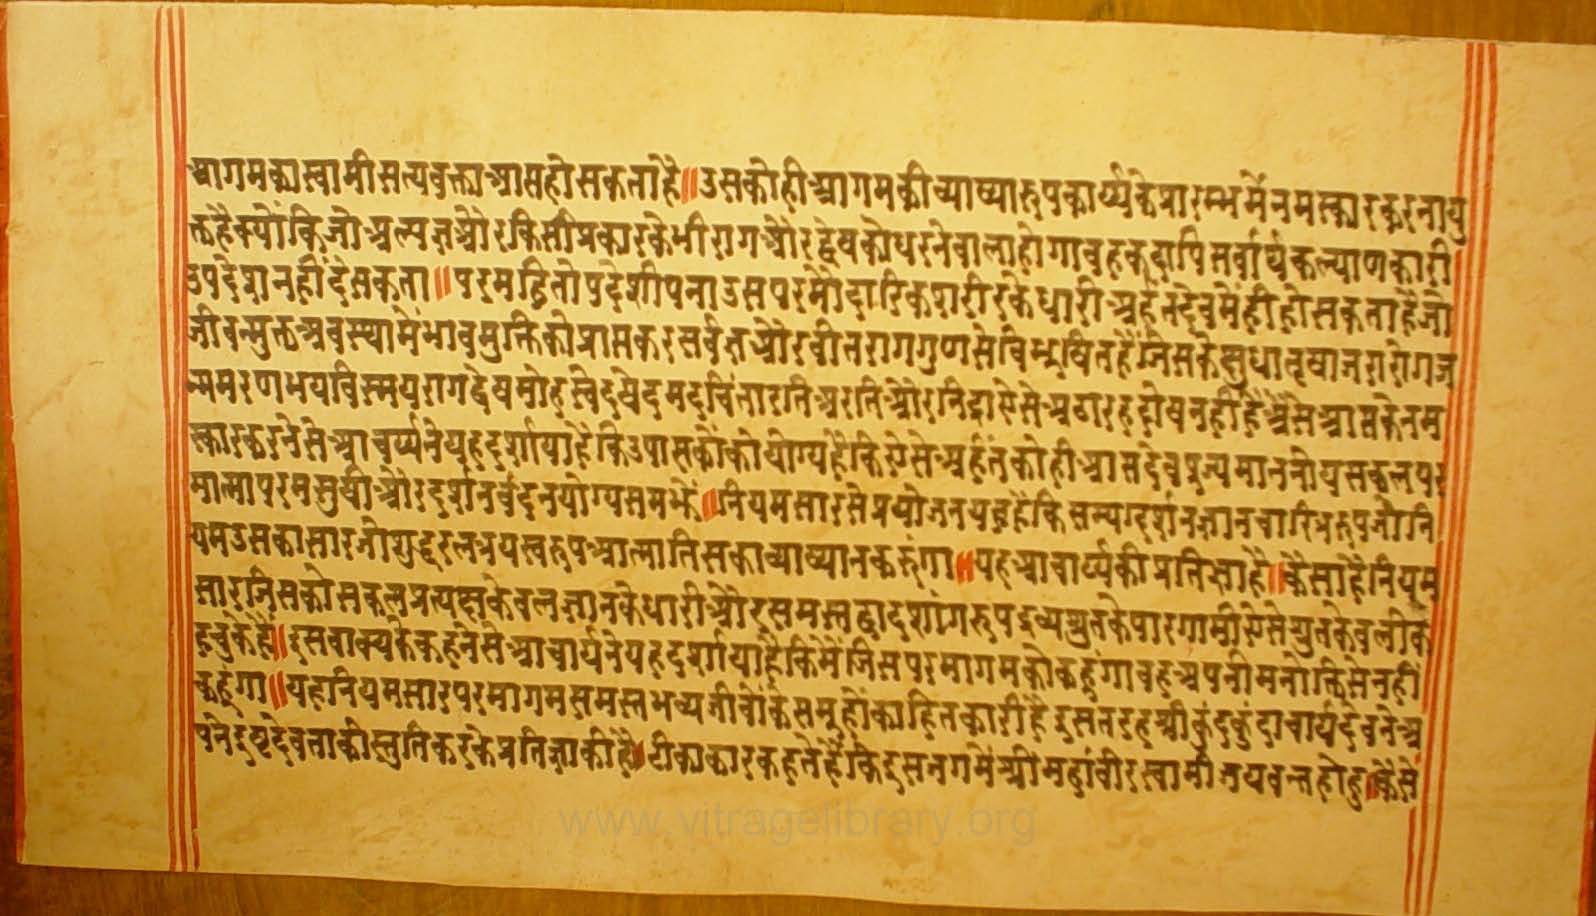 आगमका स्वामी सत्यवक्ता आप्त हो सकता है॥ उसको ही आगमकी व्याख्यारूप कार्य्यके प्रारम्भमें नमस्कार करना यु
क्त है क्योंकि जो अल्पज्ञ और किसी प्रकारके भी राग और द्वेषको धरनेवाला होगा वह कदापि सर्वार्थ कल्याणकारी
उपदेश नहीं दे सकता॥ परम हितोपदेशीपना उस परमौदारिक शरीरके धारी अर्हन्त देवमें ही हो सकता है जो
जीवन्मुक्त अवस्थामें भाव मुक्तिको प्राप्तकर सर्वज्ञ और वीतराग गुणसे विभूषित हैं जिसके क्षुधा तृषा जरा रोग ज
न्म मरण भय विस्मय राग द्वेष मोह स्वेद खेद मद चिंता रति अरति और निद्रा ऐसे अठारह दोष नहीं हैं ऐसे आप्तके नम
स्कार करनेसे आचार्य्यने यह दर्शाया है कि उपासकोंको योग्य है कि ऐसे अर्हंतको ही आप्त देव पूज्य माननीय सकल पर
मात्मा परम सुधी और दर्शन वंदन योग्य समझें॥ नियमसारसे प्रयोजन यह है कि सम्यग्दर्शन ज्ञान चारित्ररूप जो नि
यम उसका सार जो शुद्ध रत्नत्रय स्वरूप आत्मा तिसका व्याख्यान करूंगा॥ यह आचार्य्यकी प्रतिज्ञा है॥ कैसा है नियम
सार जिसको सकल प्रत्यक्ष केवलज्ञानके धारी और समस्त द्वादशांगरूप द्रव्यश्रुतके पारगामी ऐसे श्रुतकेवली क
ह चुके हैं॥ इस वाक्यके कहनेसे आचार्यने यह दर्शाया है कि मैं जिस परमागमको कहूंगा वह अपनी मनोक्तिसे नहीं
कहूंगा॥ यह नियमसार परमागम समस्त भव्य जीवोंके समूहोंका हितकारी है इस तरह श्री कुंदकुंदाचार्य देवने अ
पने इष्ट देवताकी स्तुति करके प्रतिज्ञा की है॥ टीकाकार कहते हैं कि इस जगमें श्री महावीर स्वामी जयवन्त होहु॥ कैसे
www.vitragelibrary.org